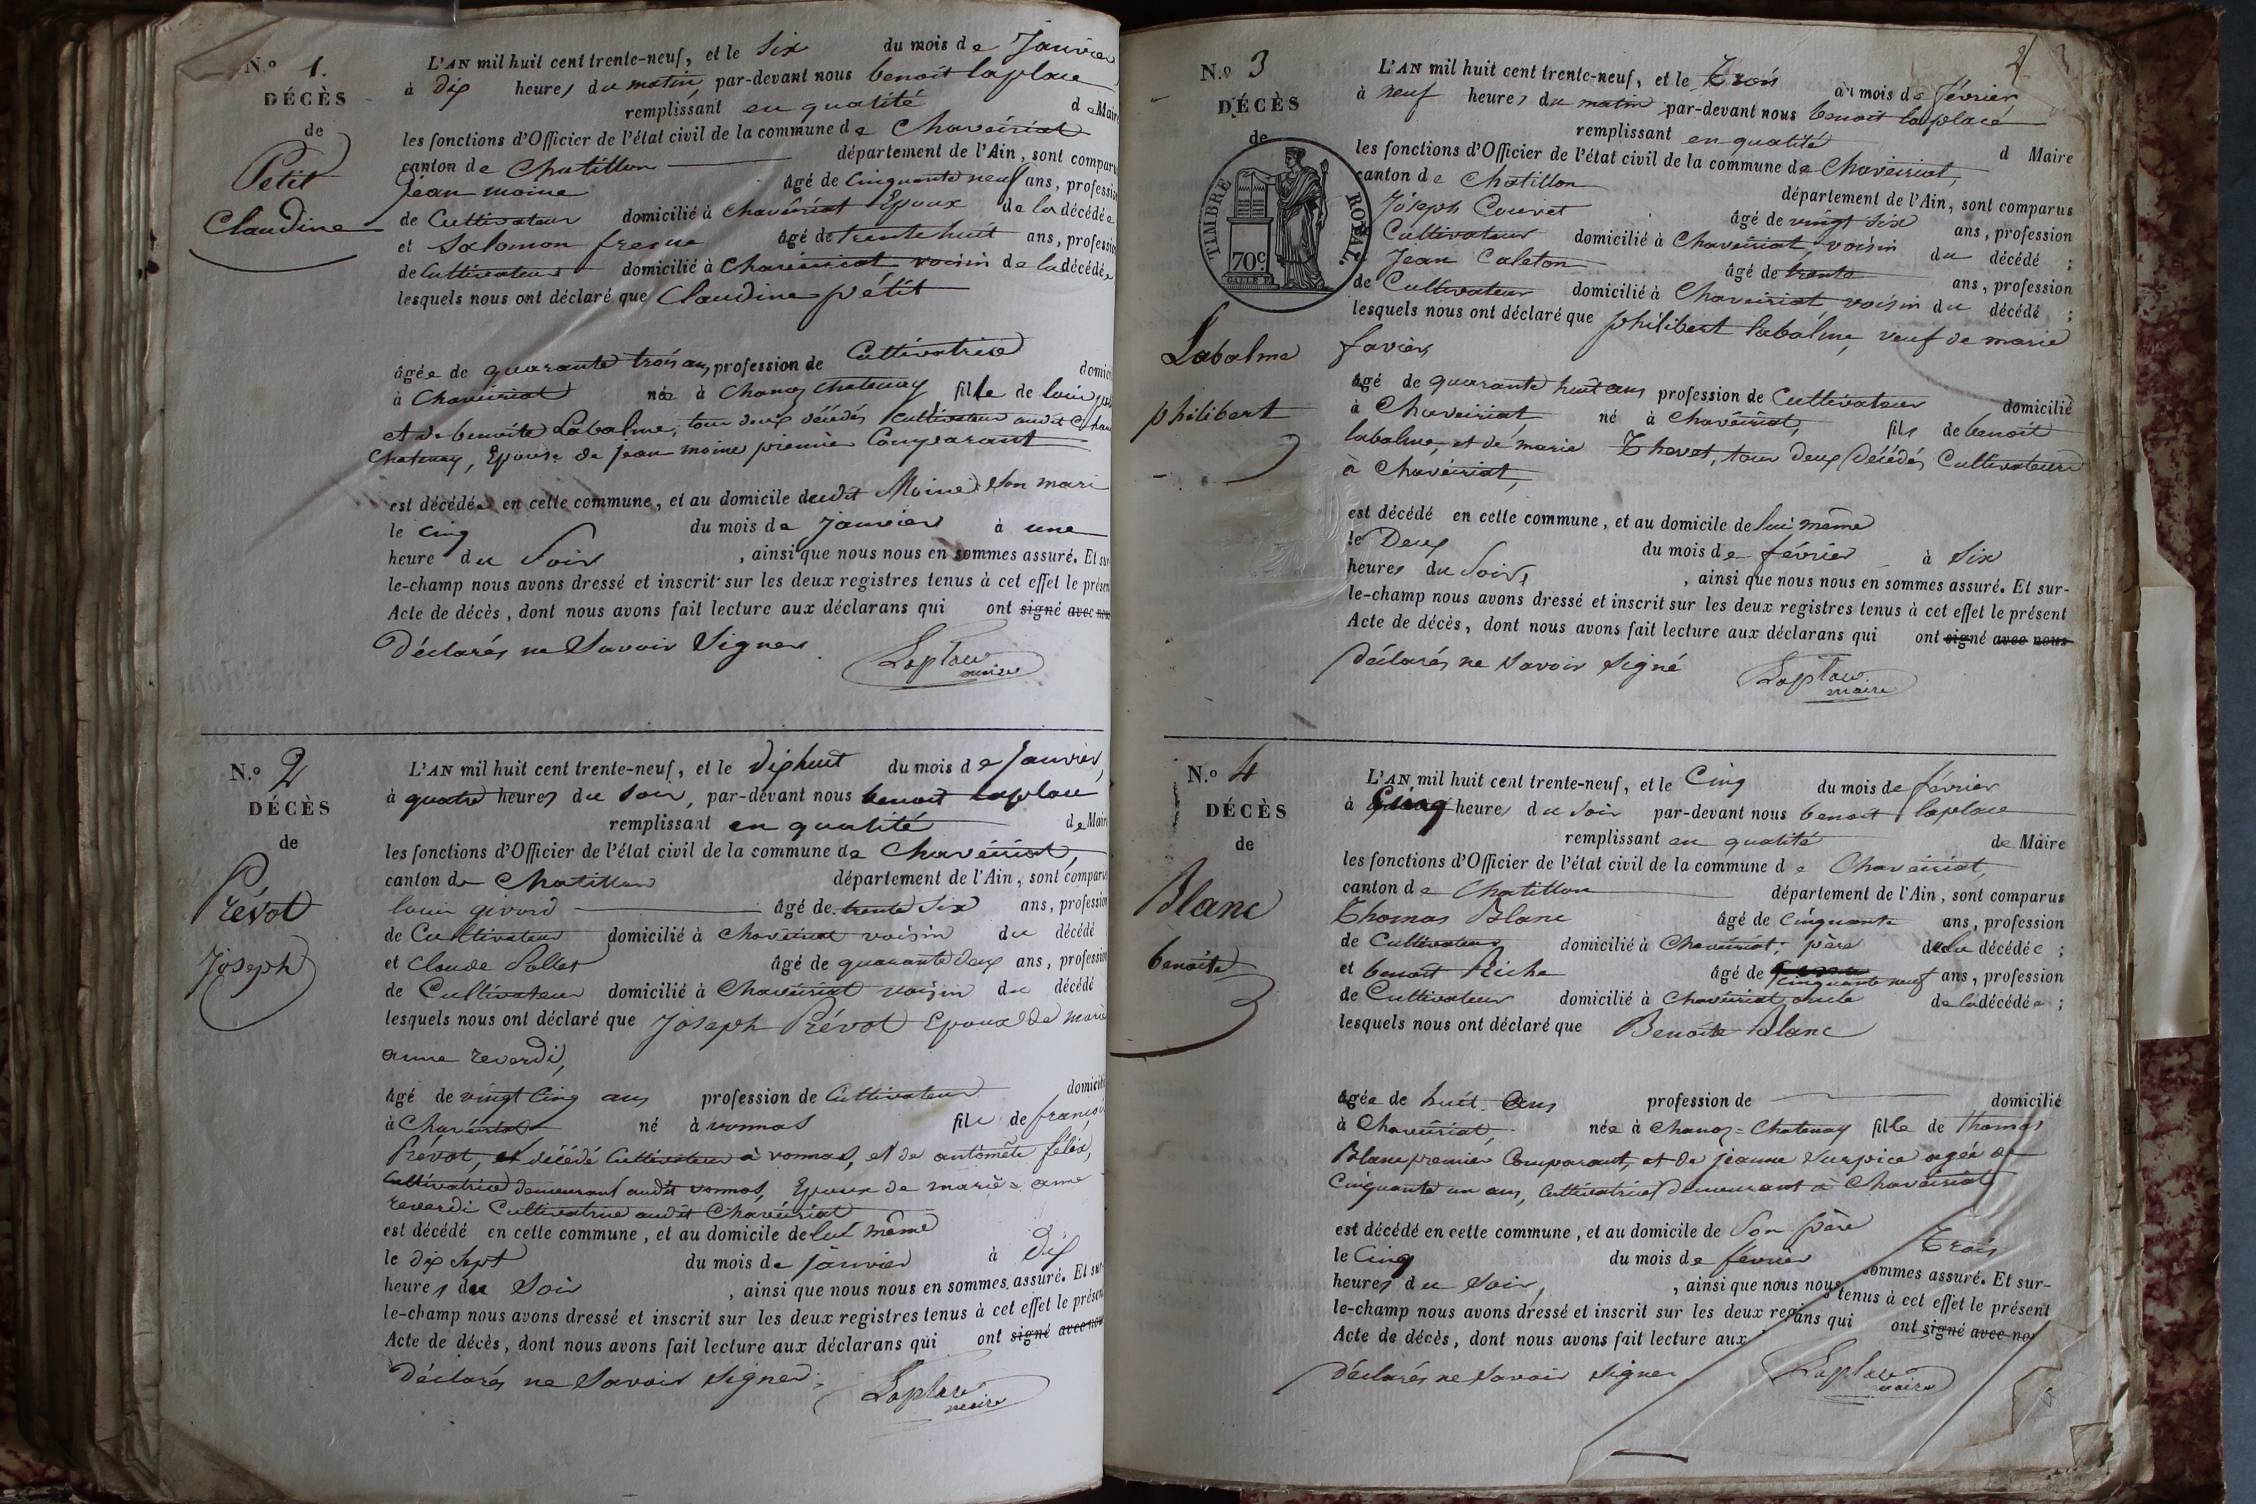 N.º 1.
DÉCÈS
de
Petit
Claudine
L'AN mil huit cent trente-neuf, et le Six du mois de Janvier
à dix heures du matin, par-devant nous benoit laplace
remplissant en qualité de Maire
les fonctions d'Officier de l'état civil de la commune de Chaveiriat
canton de Chatillon département de l'Ain, sont comparus
Jean moine âgé de Cinquante neuf ans, profession
de Cultivateur domicilié à Chaveiriat Epoux de la décédée
et Salomon âgé de trente huit ans, profession
de Cultivateur domicilié à Chaveiriat voisin de la décédée
lesquels nous ont déclaré que Claudine pétit
âgée de quarante trois ans, profession de Cultivatrice domici
à Chaveiriat née à Chanoz Chatenay fille de louis
et de benoite Labalme, tous deux décédés Cultivateur audit Chan
Chatenay, Epouse de jean moine premier Comparant
est décédée en cette commune, et au domicile dudit Moine son mari
le Cinq du mois de janvier à une
heure du Soir, ainsi que nous nous en sommes assuré. Et sur
le-champ nous avons dressé et inscrit sur les deux registres tenus à cet effet le présen
Acte de décès, dont nous avons fait lecture aux déclarans qui ont signé avec nous
Déclarés ne Savoir Signer.
Laplace
maire
N.º 2
DÉCÈS
de
Prévot
Joseph
L'AN mil huit cent trente-neuf, et le dixhuit du mois de Janvier,
à quatre heures du Soir, par-devant nous benoit laplace
remplissant en qualité de Maire
les fonctions d'Officier de l'état civil de la commune de Chaveiriat,
canton de Chatillon département de l'Ain, sont comparu
louis givord âgé de trente Six ans, profession
de Cultivateur domicilié à Chaveiriat voisin du décédé
et Claude Sallet âgé de quarante deux ans, profession
de Cultivateur domicilié à Chaveiriat voisin du décédé
lesquels nous ont déclaré que Joseph Prévot Epoux de marie
anne reverdi,
âgé de vingt Cinq ans profession de Cultivateur domicili
à Chaveiriat né à vonnas fils de françois
Prévot, décédé Cultivateur à vonnas, et de félix,
Cultivatrice demeurant audit vonnas, Epoux de marie anne
reverdi Cultivatrice audit Chaveiriat
est décédé en cette commune, et au domicile de lui même
le dix Sept du mois de janvier à Dix
heures du Soir, ainsi que nous nous en sommes assuré. Et sur
le-champ nous avons dressé et inscrit sur les deux registres tenus à cet effet le présen
Acte de décès, dont nous avons fait lecture aux déclarans qui ont signé avec nous
Déclarés ne Savoir Signer.
Laplace
maire
2
N.º 3
DÉCÈS
de
TIMBRE ROYAL.
70c.
Labalme
philibert
L'AN mil huit cent trente-neuf, et le Trois du mois de février
à neuf heures du matin par-devant nous benoit laplace
remplissant en qualité d Maire
les fonctions d'Officier de l'état civil de la commune de Chaveiriat,
canton de Chatillon département de l'Ain, sont comparus
Joseph Couvet âgé de vingt six ans, profession
Cultivateur domicilié à Chaveiriat, voisin du décédé ;
Jean Caleton âgé de trente ans, profession
de Cultivateur domicilié à Chaveiriat voisin du décédé ;
lesquels nous ont déclaré que philibert labalme, veuf de marie
favier,
âgé de quarante huit ans profession de Cultivateur domicilié
à Chaveiriat né à Chaveiriat, fils de benoit
labalme, et de marie Thevet, tous deux décédés Cultivateurs
à Chaveiriat,
est décédé en cette commune, et au domicile de lui même
le Deux du mois de février à Six
heures du Soir, ainsi que nous nous en sommes assuré. Et sur-
le-champ nous avons dressé et inscrit sur les deux registres tenus à cet effet le présent
Acte de décès, dont nous avons fait lecture aux déclarans qui ont signé avec nous
Déclarés ne Savoir Signé
Laplace
maire
N.º 4
DÉCÈS
de
Blanc
benoite
L'AN mil huit cent trente-neuf, et le Cinq du mois de février
à Cinq heures du Soir par-devant nous benoit laplace
remplissant en qualité de Maire
les fonctions d'Officier de l'état civil de la commune de Chaveiriat,
canton de Chatillon département de l'Ain, sont comparus
Thomas Blanc âgé de Cinquante ans, profession
de Cultivateur domicilié à Chaveiriat, père de la décédée ;
et benoit Riche âgé de Cinquante neuf ans, profession
de Cultivateur domicilié à Chaveiriat oncle de la décédée ;
lesquels nous ont déclaré que Benoite Blanc
âgée de huit ans profession de domicilié
à Chaveiriat, née à Chanoz=Chatenay fille de Thomas
Blanc premier Comparant, et de jeanne Surpice agée de
Cinquante un ans, Cultivatrice demeurant à Chaveiriat
est décédé en cette commune, et au domicile de Son père
le Cinq du mois de fevrier Trois
heures du Soir, ainsi que nous nous sommes assuré. Et sur-
le-champ nous avons dressé et inscrit sur les deux reg tenus à cet effet le présent
Acte de décès, dont nous avons fait lecture aux ans qui ont signé avec no
Déclarés ne Savoir Signer
Laplace
maire